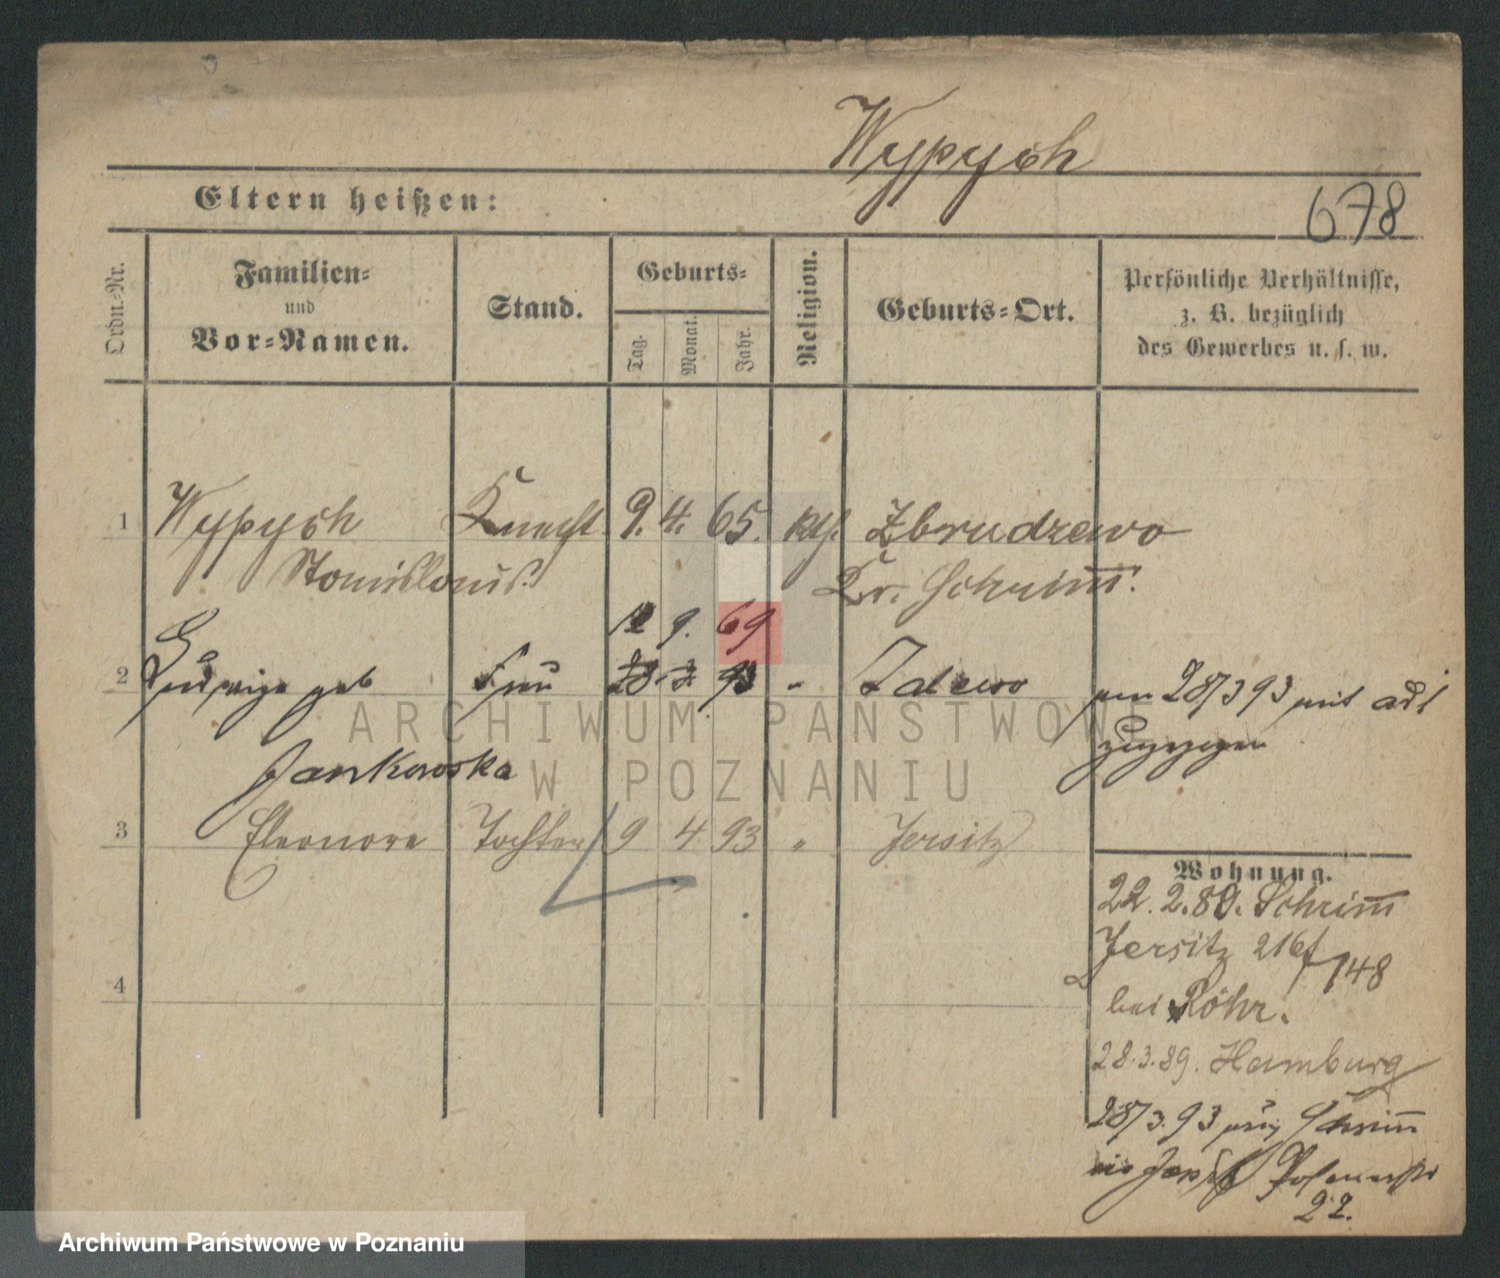 Wypych
Eltern heißen:
678
Ordn.-Nr.
Familien-
und
Vor-Namen.
Stand.
Geburts-
Tag.
Monat.
Jahr.
Religion.
Geburts-Ort.
Persönliche Verhältnisse,
z. B. bezüglich
des Gewerbes u. s. w.
1 Wypych Knecht 9. 4. 65. kth. Zbrudzewo
Stanislaus. Kr. Schrimm.
12 9. 69
2 Hedwige geb Frau 28. 3. 93 " Zalewo
am 28/3 93 mit
zugezogen
Jankowska
3 Eleonore Tochter 9 4 93 " Jersitz
4
Wohnung.
22. 2. 89. Schrimm
Jersitz 216f/148
bei Röhr.
28.3.89. Hamburg
28/3.93 Schrimm
22.
ARCHIWUM PAŃSTWOWE
W POZNANIU
Archiwum Państwowe w Poznaniu